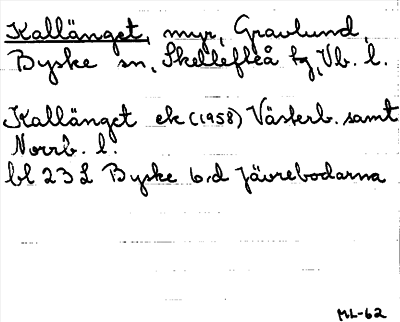 Kallänget, myr, Gravlund,
Byske sn, Skellefteå tg, Vb. l.
Kallänget ek (1958) Västerb. samt
Norrb. l.
bl 23 L Byske 6.d Jävrebodarna
ML-62